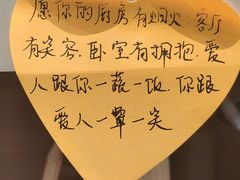 愿你的厨房有烟火.客厅
有笑容.卧室有拥抱.爱
人跟你一蔬一饭.你跟
爱人一颦一笑